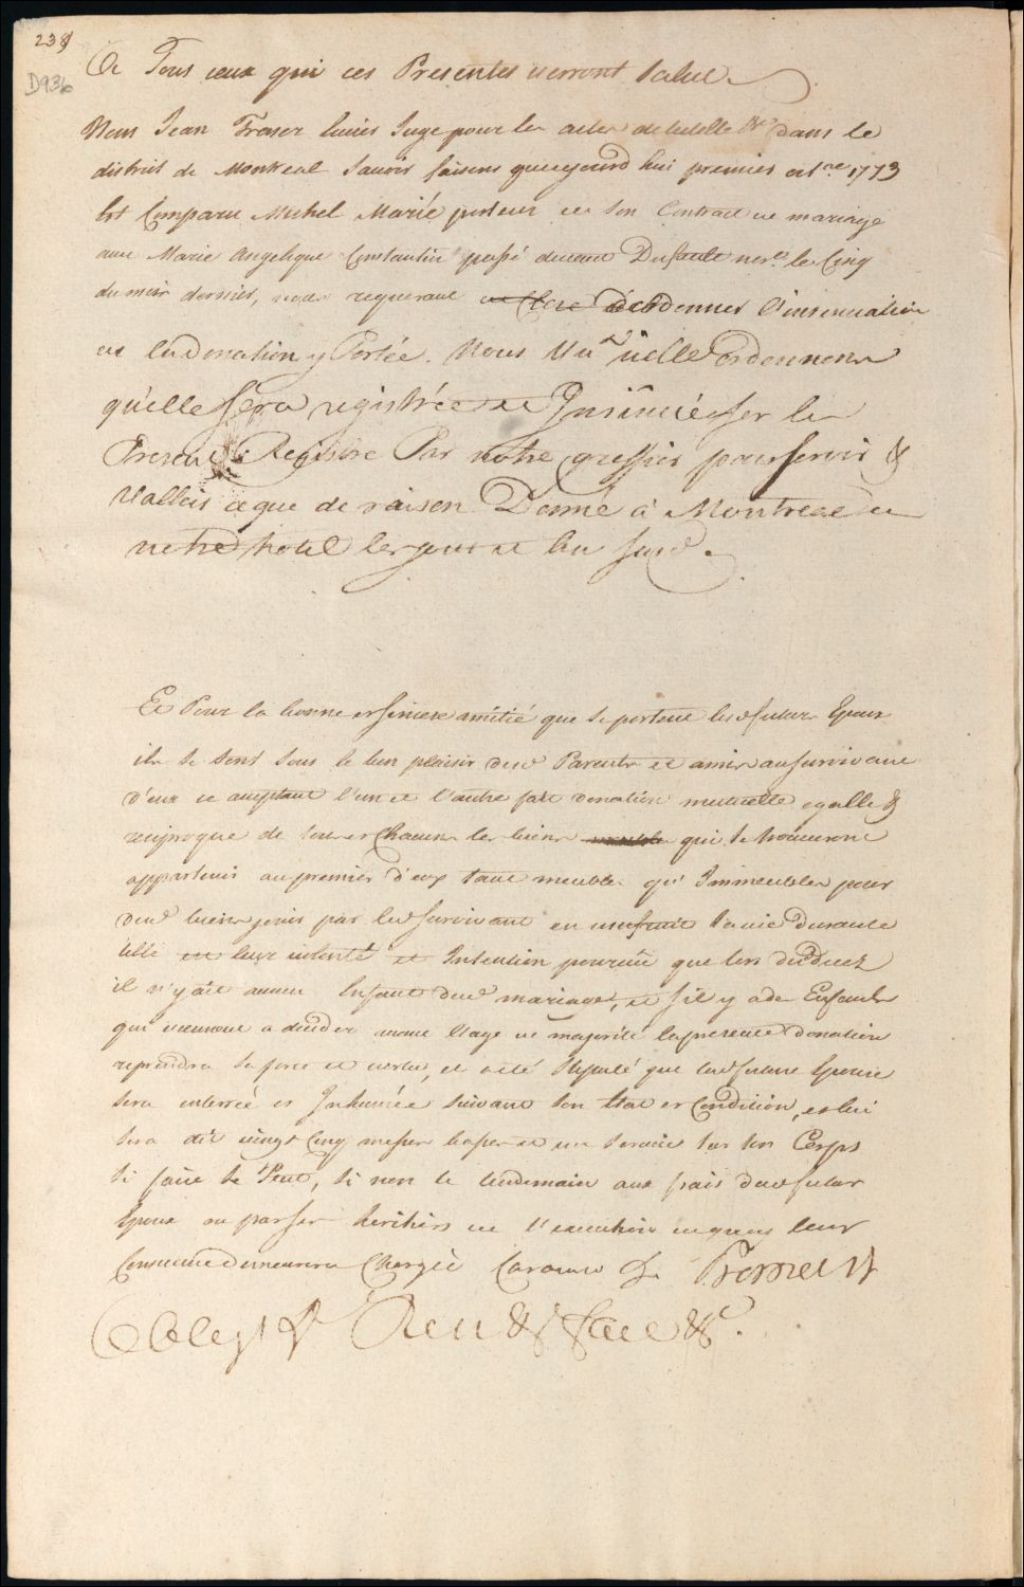 239
D936
A Tous ceux qui ces Presentes verront Salut
Nous Jean Fraser Juge pour les actes de tutelle &c dans le
district de Montreal Savoir faisons que cejourd hui premier 1773
Est Comparu Michel Marié porteur de son Contract de mariage
avec Marie Angelique Constantin passé devant Dufault nore. le Cinq
du mois dernier, nous requerant donner l'insinuation
de la donation y Portée. Nous Ordonnons
qu'elle sera registrée et Insinuée sur le
Present Registre Par notre greffier pour servir &
Valloir ce que de raison Donné à Montreal en
notre hotel les jour et an susd.
Et Pour la bonne et sincere amitié que se portent lesd futurs Epoux
ils se sont sous le bon plaisir desd Parents et amis au survivant
d'eux ce acceptant l'un et l'autre fait donation mutuelle egalle &
reciproque de tous et Chacuns les biens qui se trouveront
appartenir au premier d'eux tant meubles qu' Immeubles pour
desd biens jouir par led survivant en usufruit sa vie durante
telle est leur volonté et Intention pourvû que lors du deced
il n'y ait aucun Enfant dud mariage, et s'il y a des Enfants
qui viennent a deceder avant l'age de majorité la presente donation
reprendra sa force et vertu, et a été stipulé que lad future Epouse
sera enterrée et Inhumée suivant son Etat et Condition, et lui
sera dit vingt Cinq messes basses et un service sur son Corps
si faire se Peut, si non le lendemain aux frais dud futur
Epoux ou par ses heritiers de l'execution de quoy leur
Conscience demeurera Chargée Car ainsi &c Promett
Obligt & Ren & &c.